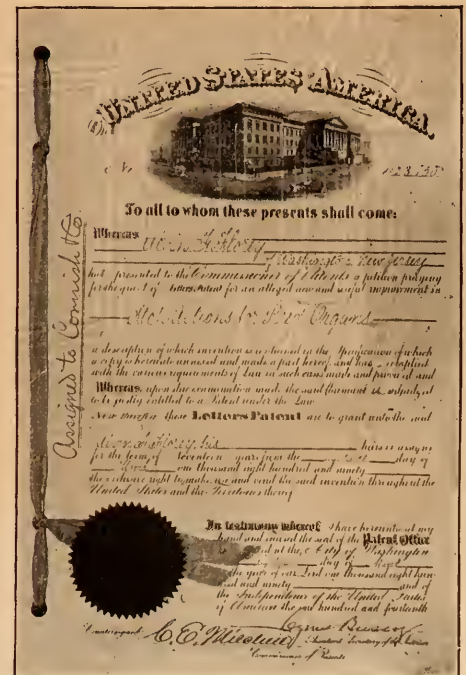 UNITED STATES AMERICA
To all to whom these presents shall come:
Whereas
of Washington New Jersey
has presented to the Commissioner of Patents a petition praying
for the grant of Letters Patent for an alleged new and useful improvement in
Organs
a description of which invention is contained in the Specification of which
a copy is hereunto annexed and made a part hereof, and has complied
with the various requirements of Law in such cases made and provided, and
Whereas, upon due examination made the said Claimant is adjudged
to be justly entitled to a Patent under the Law.
Now therefore these Letters Patent are to grant unto the said
his heirs or assigns
for the term of seventeen years from the day of
one thousand eight hundred and ninety
the exclusive right to make use and vend the said invention throughout the
United States and the Territories thereof.
In testimony whereof I have hereunto set my
hand and caused the seal of the Patent Office
at the City of Washington
day of
the year of our Lord one thousand eight hun-
dred and ninety and of
the Independence of the United States
of America the one hundred and fourteenth
Countersigned
Commissioner of Patents
Assigned to Cornish & Co.